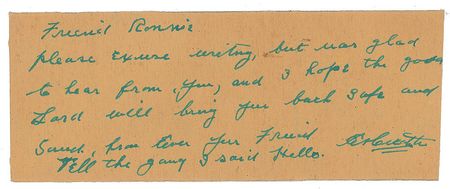 Friend Ronnie
please Excuse writng, but was glad
to hear from you, and I hope the good
Lord will bring you back safe and
Sound, from Ever your Friend
Tell the gang I said Hello.